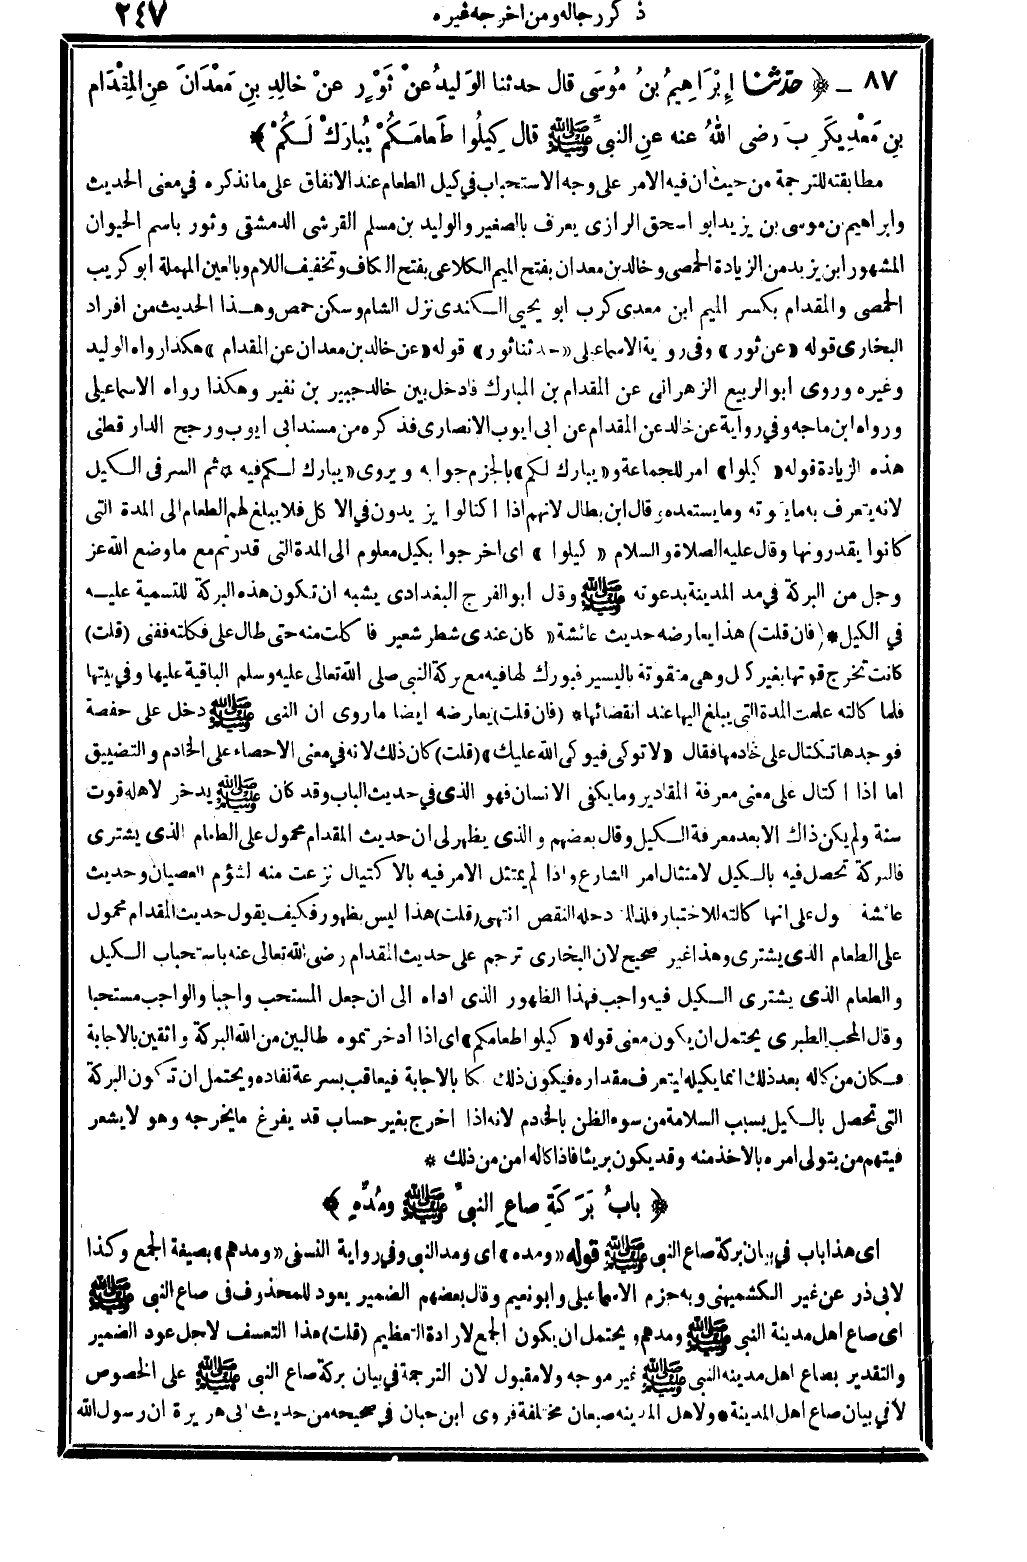 ذكر رجاله ومن اخرجه غيره ٢٤٧
٨٧ _ ﴿ حدّثنا إِبْرَاهِيمُ بنُ مُوسَى قال حدثنا الوَلِيدُ عنْ ثَوْرٍ عنْ خالِدِ بنِ مَعْدَانَ عنِ المِقْدَامِ
بنِ مَعْدِيكَرِبَ رضى اللهُ عنه عنِ النبىِّ ﷺ قال كِيلُوا طَعامَكُمْ يُبارَكْ لَكُمْ ﴾
مطابقته للترجمة من حيث ان فيه الامر على وجه الاستحباب في كيل الطعام عند الانفاق على ما نذكره في معنى الحديث
وابراهيم بن موسى بن يزيد ابو اسحق الرازى يعرف بالصغير والوليد بن مسلم القرشى الدمشقى وثور باسم الحيوان
المشهور ابن يزيد من الزيادة الحمصى وخالد بن معدان بفتح الميم الكلاعى بفتح الكاف وتخفيف اللام وبالعين المهملة ابو كريب
الحمصى والمقدام بكسر الميم ابن معدى كرب ابو يحيى الكندى نزل الشام وسكن حمص وهذا الحديث من افراد
البخارى قوله «عن ثور» وفى رواية الاسماعيلى «حدثنا ثور» قوله «عن خالد بن معدان عن المقدام» هكذا رواه الوليد
وغيره وروى ابو الربيع الزهرانى عن المقدام بن المبارك فادخل بين خالد جبير بن نفير وهكذا رواه الاسماعيلى
ورواه ابن ماجه وفي رواية عن خالد عن المقدام عن ابى ايوب الانصارى فذكره من مسند ابى ايوب ورجح الدار قطنى
هذه الزيادة قوله «كيلوا» امر للجماعة و«يبارك لكم» بالجزم جوابه ويروى «يبارك لكم فيه» ثم السر فى الكيل
لانه يتعرف به ما يقوته وما يستعده، قال ابن بطال لانهم اذا اكتالوا يزيدون في الاكل فلا يبلغ لهم الطعام الى المدة التى
كانوا يقدرونها وقال عليه الصلاة والسلام «كيلوا» اى اخرجوا بكيل معلوم الى المدة التى قدرتم مع ما وضع الله عز
وجل من البركة في مد المدينة بدعوته ﷺ وقال ابو الفرج البغدادى يشبه ان تكون هذه البركة للتسمية عليه
في الكيل * (فان قلت) هذا يعارضه حديث عائشة «كان عندى شطر شعير فاكلت منه حتى طال على فكلته ففنى (قلت)
كانت تخرج قوتها بغير كيل وهى متقوتة باليسير فبورك لها فيه مع بركة النبى صلى الله تعالى عليه وسلم الباقية عليها وفى بيتها
فلما كالته علمت المدة التى يبلغ اليها عند انقضائها * (فان قلت) يعارضه ايضا ما روى ان النبى ﷺ دخل على حفصة
فوجدها تكتال على خادمها فقال «لا توكى فيوكى الله عليك» (قلت) كان ذلك لانه في معنى الاحصاء على الخادم والتضييق
اما اذا اكتال على معنى معرفة المقادير وما يكفى الانسان فهو الذى في حديث الباب وقد كان ﷺ يدخر لاهله قوت
سنة ولم يكن ذاك الا بعد معرفة الكيل وقال بعضهم والذى يظهر لى ان حديث المقدام محمول على الطعام الذى يشترى
فالبركة تحصل فيه بالكيل لامتثال امر الشارع واذا لم يمتثل الامر فيه بالاكتيال نزعت منه لشؤم العصيان وحديث
عائشة ول على انها كالته للاختبار فلذلك دخله النقص انتهى (قلت) هذا ليس بظهور فكيف يقول حديث المقدام محمول
على الطعام الذى يشترى وهذا غير صحيح لان البخارى ترجم على حديث المقدام رضى الله تعالى عنه باستحباب الكيل
والطعام الذى يشترى الكيل فيه واجب فهذا الظهور الذى اداه الى ان جعل المستحب واجبا والواجب مستحبا
وقال المحب الطبرى يحتمل ان يكون معنى قوله «كيلوا طعامكم» اى اذا أدخرتموه طالبين من الله البركة واثقين بالاجابة
فكان من كاله بعد ذلك انما يكيله ليتعرف مقداره فيكون ذلك شكا بالاجابة فيعاقب بسرعة نفاده ويحتمل ان تكون البركة
التى تحصل بالكيل بسبب السلامة من سوء الظن بالخادم لانه اذا اخرج بغير حساب قد يفرغ ما يخرجه وهو لا يشعر
فيتهم من يتولى امره بالاخذ منه وقد يكون بريئا فاذا كاله امن من ذلك *
﴿ بابُ بَرَكَةِ صاعِ النبىِّ ﷺ ومُدِّهِ ﴾
اى هذا باب في بيان بركة صاع النبى ﷺ قوله «ومده» اى ومد النبى وفى رواية النسفى «ومدهم» بصيغة الجمع وكذا
لابى ذر عن غير الكشميهنى وبه جزم الاسماعيلى وابو نعيم وقال بعضهم الضمير يعود للمحذوف فى صاع النبى ﷺ
اى صاع اهل مدينة النبى ﷺ ومدهم ويحتمل ان يكون الجمع لارادة التعظيم (قلت) هذا التعسف لاجل عود الضمير
والتقدير بصاع اهل مدينة النبى ﷺ غير موجه ولا مقبول لان الترجمة في بيان بركة صاع النبى ﷺ على الخصوص
لا في بيان صاع اهل المدينة * ولاهل المدينة صيعان مختلفة فروى ابن حبان في صحيحه من حديث ابى هريرة ان رسول الله